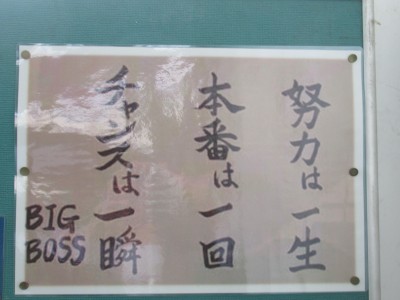 努力は一生
本番は一回
チャンスは一瞬
BIG
BOSS